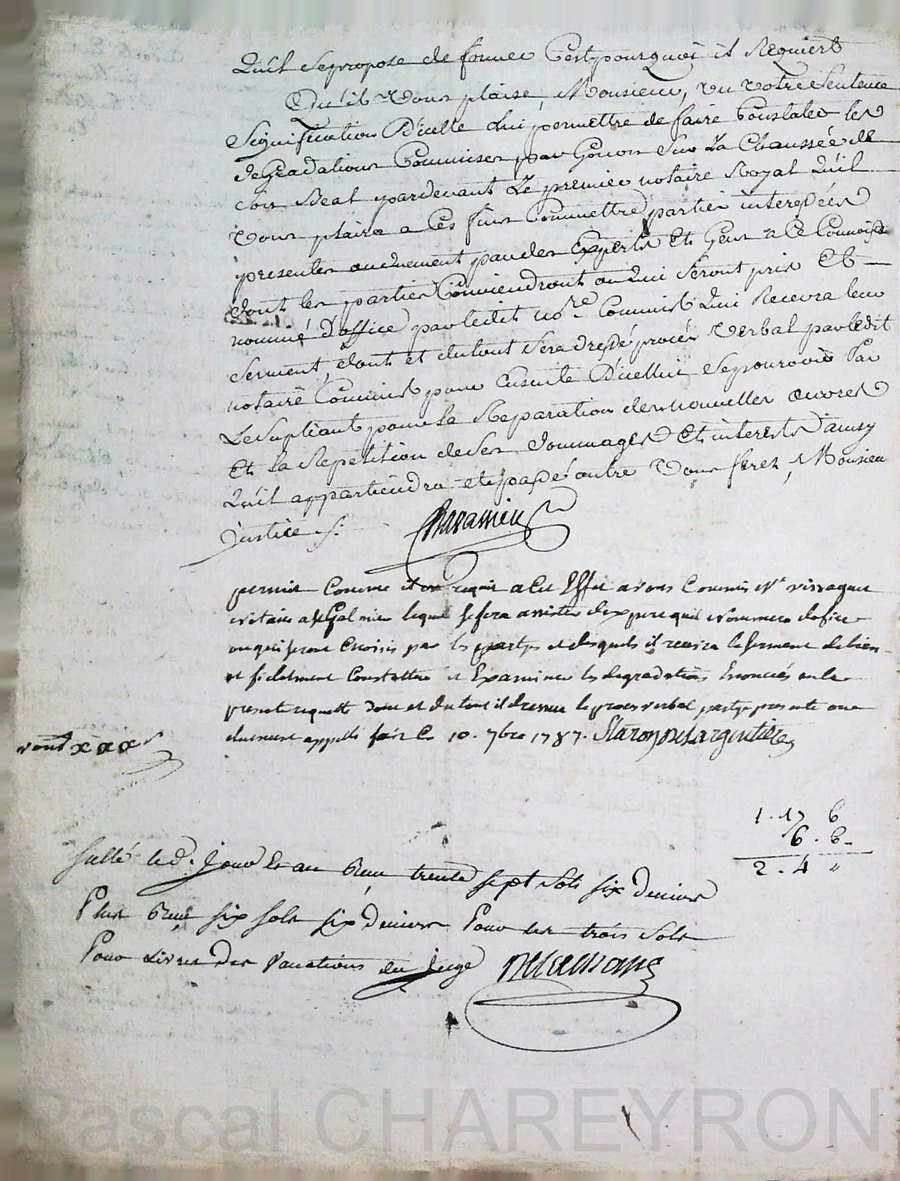 Quil Sepropose de former C'est pourquoi il Requiert
Qu'il Vous plaise, Monsieur, vu votre Sentence
Signification D'icelle lui permettre de faire Constater les
degradations Commises par Gouon Sur La Chaussée de
Son Beal pardevant Le premier notaire Royal Quil
Vous plaira a Ces fins Commettre parties interessées
presentes ou duement par des Experts Et Gens a Ce Connoiss
dont les parties Conviendront ou qui Seront pris Et
nommés D'office par ledit nore Commis Qui Recevra leur
Serment, dont et dutout Sera dressé procès Verbal par ledit
notaire Commis pour Ensuite D'icellui Se pourvoir Par
Le Supliant pour la Reparation des nouvelles œuvres
Et la Repetition de Ses dommages Et interets d'ainsy
Quil appartiendra et passé outre Vous ferez, Monsieur
justice /.
permis Comme il est requis a Cet Effet avons Commis Me
notaire lequel se fera assister dexpers quil nommera dofice
ou qui seront Choisis par les partyes et desquels il recevra le serment de bien
et fidelement Constatter et Examiner les degradations Enoncés en la
presente requette dont et du tout il dressera le proces verbal partye presente ou
duement appellé fait Ce 10. 7bre 1787. Staron De Largentiere
vont xxx s
1. 17 6
6. 6.
2. 4 "
scellé led. Jour Et an Reçu trente sept sols six deniers
Plus Reçu six sols six deniers Pour les trois sols
Pour Livre Des Vacations du Juge
Pascal CHAREYRON